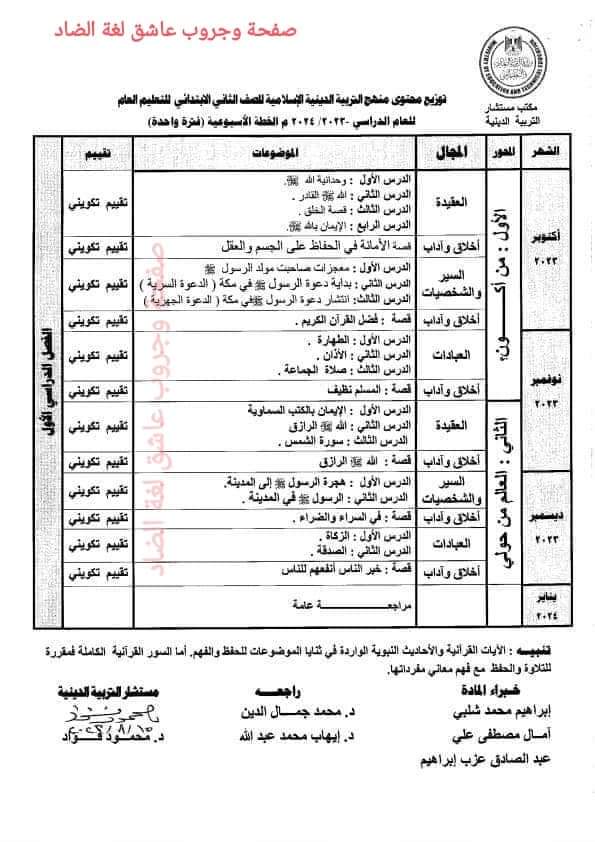 صفحة وجروب عاشق لغة الضاد
مكتب مستشار
التربية الدينية
توزيع محتوى منهج التربية الدينية الإسلامية للصف الثاني الابتدائي للتعليم العام
للعام الدراسي -٢٠٢٣/ ٢٠٢٤ م الخطة الأسبوعية (فترة واحدة)
الشهر المحور المجال الموضوعات تقييم
الفصل الدراسي الأول
أكتوبر
٢٠٢٣
الأول : من أكـــون؟
العقيدة
الدرس الأول : وحدانية الله ﷻ.
الدرس الثاني : الله ﷻ القادر .
الدرس الثالث : قصة الخلق .
الدرس الرابع : الإيمان بالله ﷻ.
تقييم تكويني
أخلاق وآداب قصة الأمانة في الحفاظ على الجسم والعقل تقييم تكويني
السير
والشخصيات
الدرس الأول : معجزات صاحبت مولد الرسول ﷺ
الدرس الثاني : بداية دعوة الرسول ﷺ في مكة ( الدعوة السرية )
الدرس الثالث: انتشار دعوة الرسول ﷺ في مكة ( الدعوة الجهرية )
تقييم تكويني
أخلاق وآداب قصة : فضل القرآن الكريم . تقييم تكويني
نوفمبر
٢٠٢٣
العبادات
الدرس الأول : الطهارة .
الدرس الثاني : الأذان .
الدرس الثالث : صلاة الجماعة .
تقييم تكويني
أخلاق وآداب قصة : المسلم نظيف تقييم تكويني
الثاني : العالم من حولي
العقيدة
الدرس الأول : الإيمان بالكتب السماوية
الدرس الثاني : الله ﷻ الرازق .
الدرس الثالث : سورة الشمس .
تقييم تكويني
أخلاق وآداب قصة : الله ﷻ الرازق تقييم تكويني
ديسمبر
٢٠٢٣
السير
والشخصيات
الدرس الأول : هجرة الرسول ﷺ إلى المدينة.
الدرس الثاني : الرسول ﷺ في المدينة .
تقييم تكويني
أخلاق وآداب قصة : في السراء والضراء . تقييم تكويني
العبادات
الدرس الأول : الزكاة .
الدرس الثاني : الصدقة .
تقييم تكويني
أخلاق وآداب قصة : خير الناس أنفعهم للناس تقييم تكويني
يناير
٢٠٢٤
مراجعـــــــة عامة
صفحة وجروب عاشق لغة الضاد
تنبيـه : الآيات القرآنية والأحاديث النبوية الواردة في ثنايا الموضوعات للحفظ والفهم. أما السور القرآنية الكاملة فمقررة
للتلاوة والحفظ مع فهم معاني مفرداتها.
خبراء المادة راجعـــه مستشار التربية الدينية
إبراهيم محمد شلبي د. محمد جمال الدين
آمال مصطفى علي د. إيهاب محمد عبد الله د. محمود فؤاد
عبد الصادق عزب إبراهيم